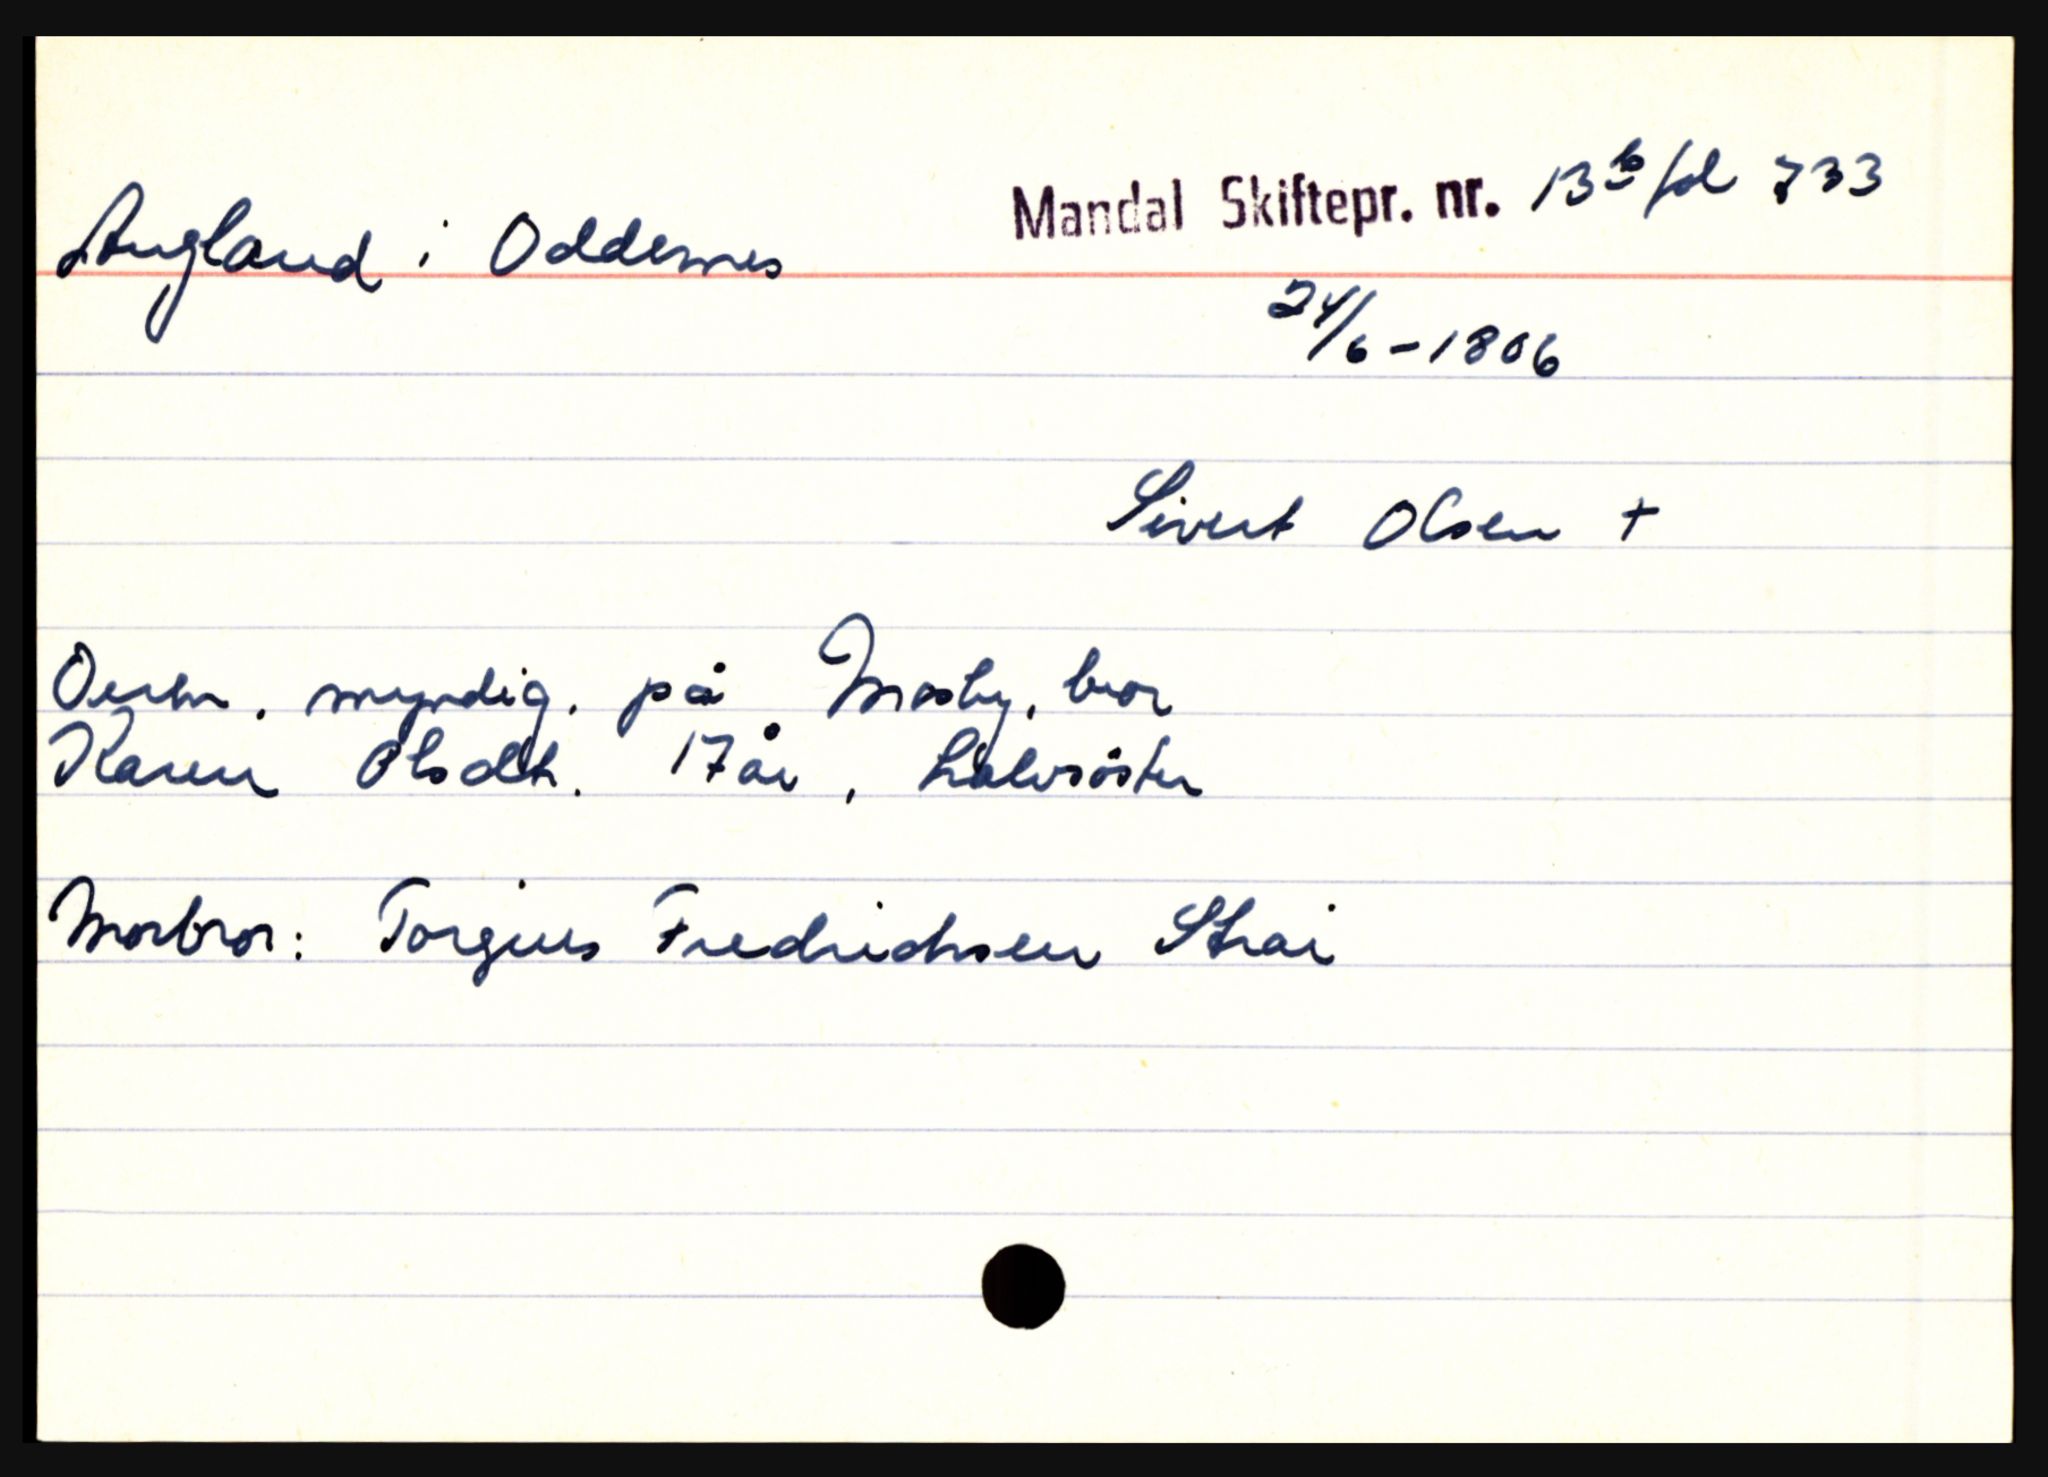 Augland i Oddernes
Mandal Skiftepr. nr. 13b fol 733
24/6-1806
Sivert Olsen +
myndig, på Mosby, bror
Karen Olsdtr. 17 år, halvsöster
Morbror: Torgius Fredrichsen Strai